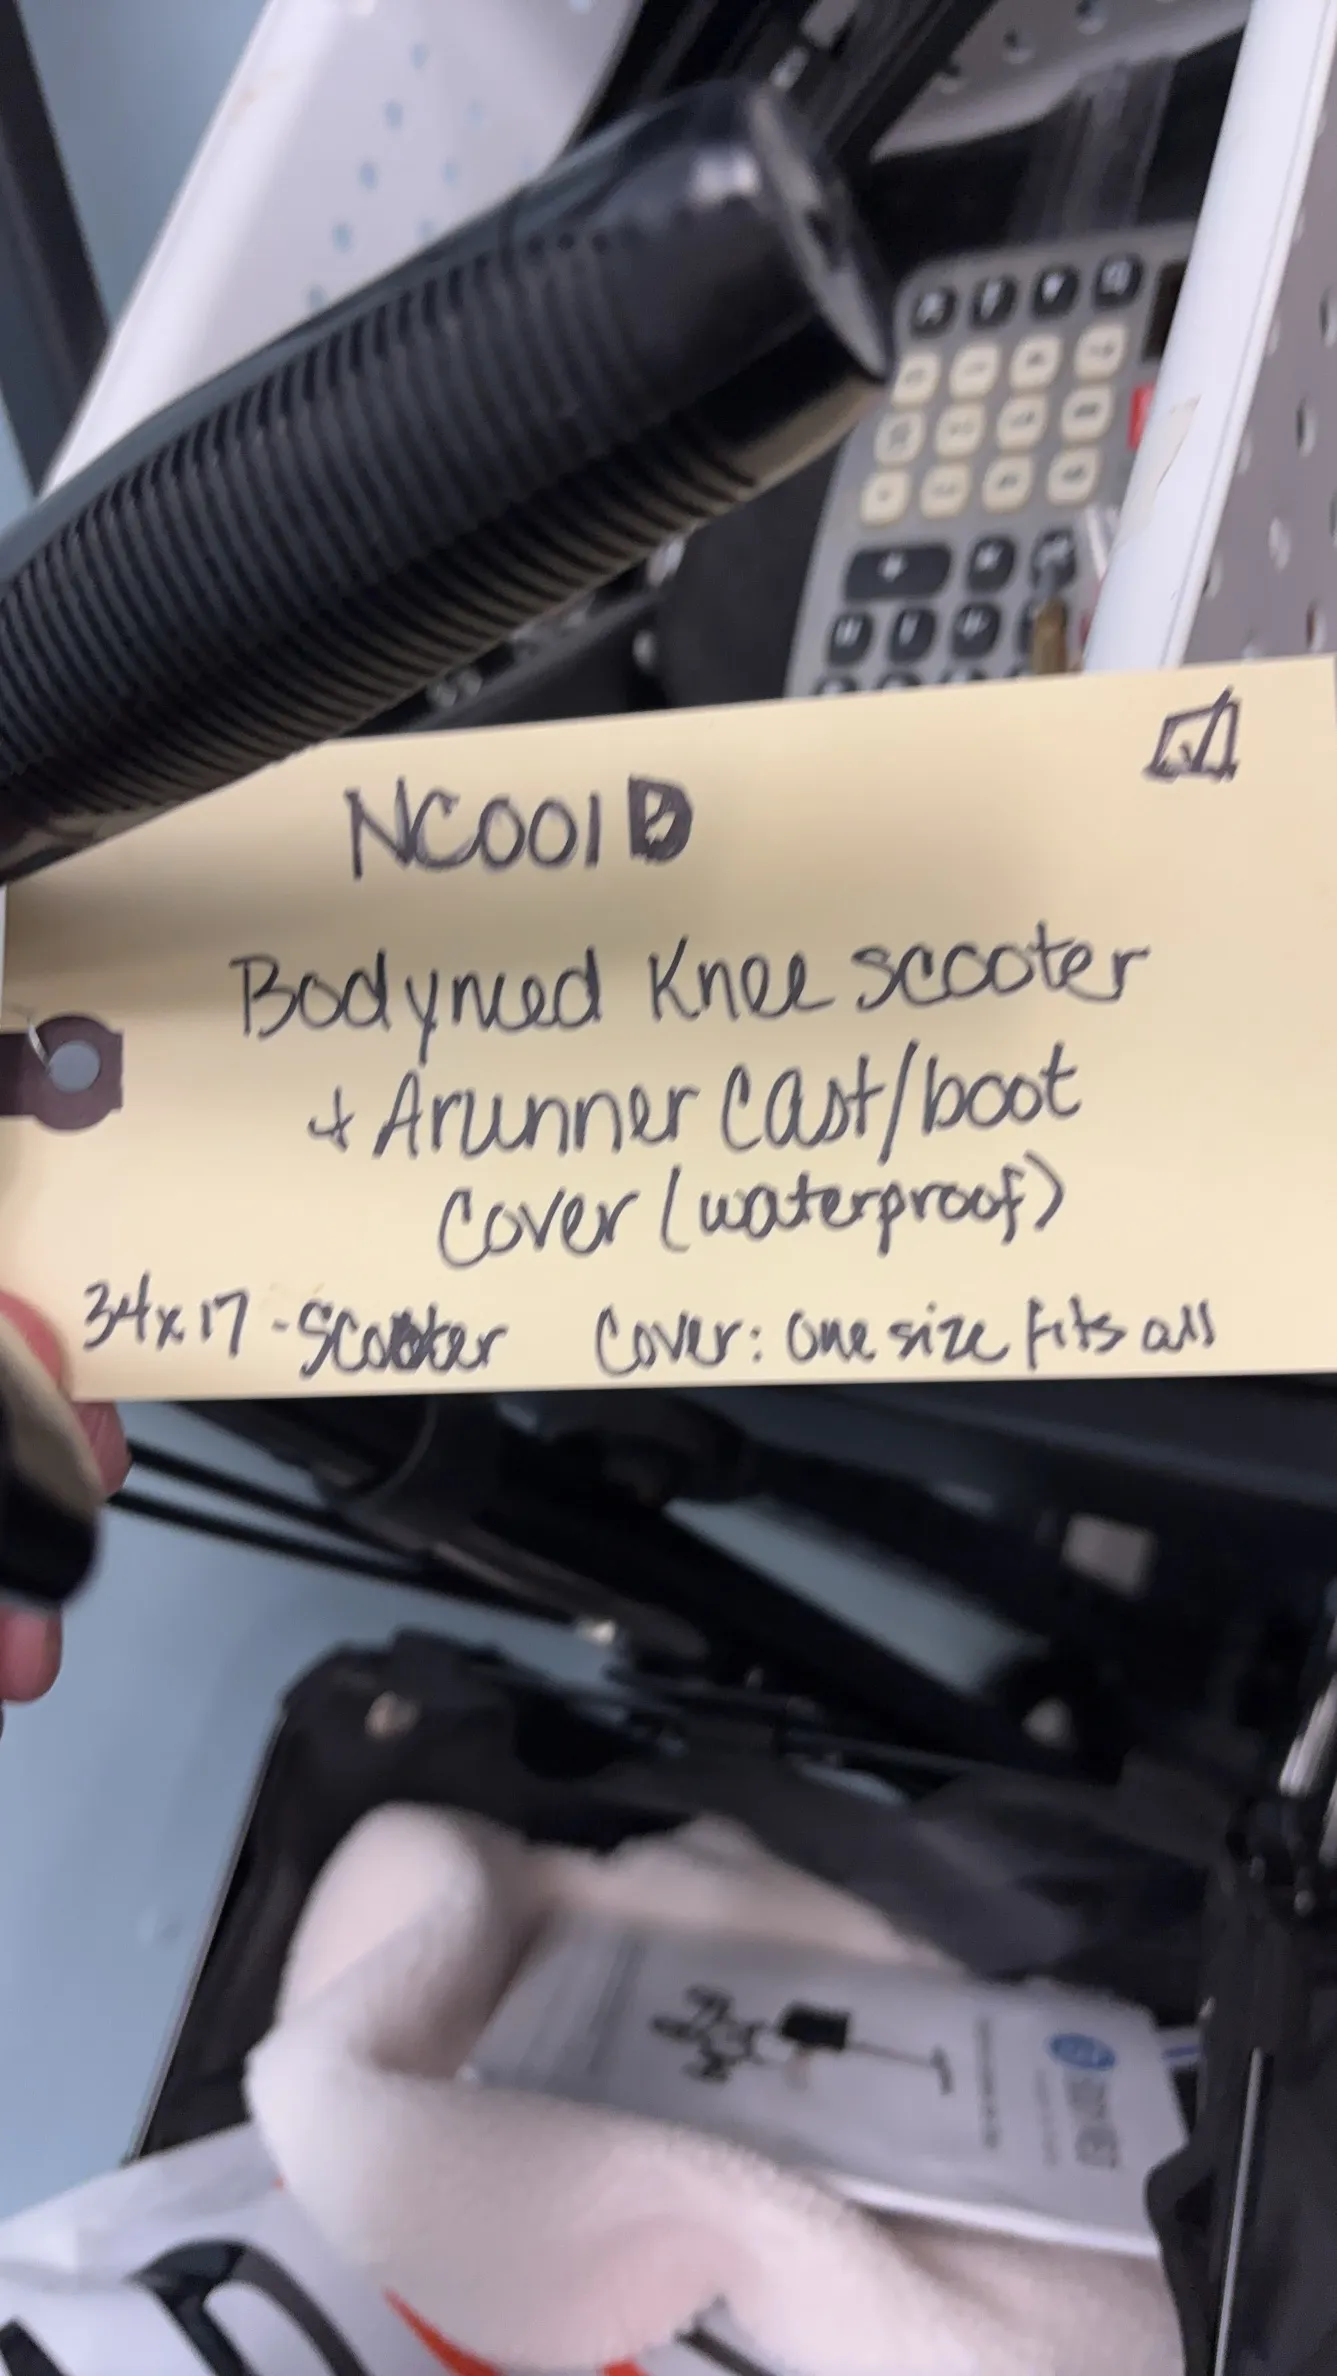 NC001B
Bodymed Knee scooter
+ Arunner Cast/boot
Cover (waterproof)
34x17 - Scooter Cover: one size fits all